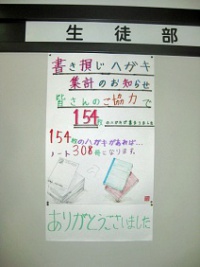 生徒部
書き損じハガキ
集計のお知らせ
皆さんのご協力で
154枚のハガキが集まりました
154枚のハガキがあれば…
ノート308冊になります。
ありがとうございました